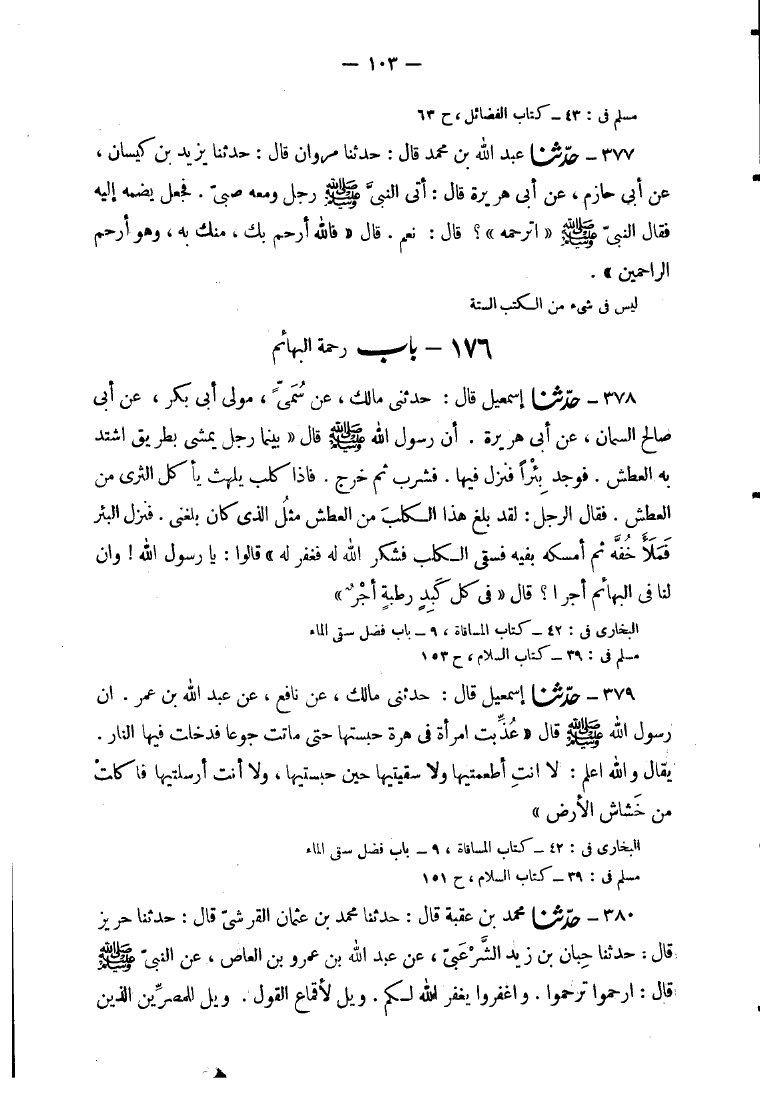 — ١٠٣ —
مسلم فى : ٤٣ – كتاب الفضائل ، ح ٦٣
٣٧٧ – حدّثنا عبد الله بن محمد قال : حدثنا مروان قال : حدثنا يزيد بن كيسان ،
عن أبي حازم ، عن أبى هريرة قال : أتى النبىَّ ﷺ رجل ومعه صبىّ . فجعل يضمه إليه
فقال النبىّ ﷺ « اترحمه » ؟ قال : نعم . قال « فالله أرحم بك ، منك به ، وهو أرحم
الراحمين » .
ليس فى شىء من الكتب الستة
١٧٦ – باب رحمة البهائم
٣٧٨ – حدّثنا إسمعيل قال : حدثنى مالك ، عن سُمَىّ ، مولى أبى بكر ، عن أبى
صالح السمان ، عن أبى هريرة . أن رسول الله ﷺ قال « بينما رجل يمشى بطريق اشتد
به العطش . فوجد بِئْراً فنزل فيها . فشرب ثم خرج . فاذا كلب يلهث يأكل الثرى من
العطش . فقال الرجل : لقد بلغ هذا الكلبَ من العطش مثلُ الذى كان بلغنى . فنزل البئر
فَمَلَأَ خُفَّه ثم أمسكه بفيه فسقى الكلب فشكر الله له فغفر له » قالوا : يا رسول الله ! وان
لنا فى البهائم أجرا ؟ قال « فى كل كَبِدٍ رطبةٍ أجْرٌ »
البخارى فى : ٤٢ – كتاب المساقاة ، ٩ – باب فضل سقى الماء
مسلم فى : ٣٩ – كتاب السلام ، ح ١٥٣
٣٧٩ – حدّثنا إسمعيل قال : حدثنى مالك ، عن نافع ، عن عبد الله بن عمر . ان
رسول الله ﷺ قال « عُذِّبت امرأة فى هرة حبستها حتى ماتت جوعا فدخلت فيها النار .
يقال والله اعلم : لا انتِ أطعمتيها ولا سقيتيها حين حبستيها ، ولا أنت أرسلتيها فاكلتْ
من خَشاش الأرض »
البخارى فى : ٤٢ – كتاب المساقاة ، ٩ – باب فضل سقى الماء
مسلم فى : ٣٩ – كتاب السلام ، ح ١٥١
٣٨٠ – حدّثنا محمد بن عقبة قال : حدثنا محمد بن عثمان القرشىّ قال : حدثنا حريز
قال : حدثنا حِبان بن زيد الشَّرْعَبىّ ، عن عبد الله بن عمرو بن العاص ، عن النبىّ ﷺ
قال : ارحموا ترحموا . واغفروا يغفر الله لكم . ويل لأقماع القول . ويل للمصرِّين الذين